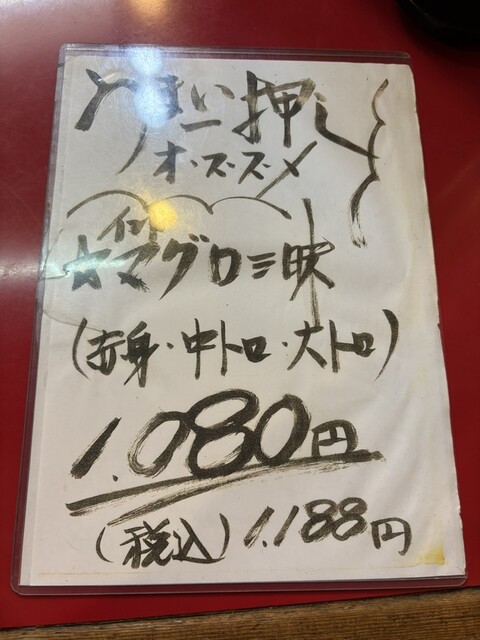 押し
オススメ
☆マグロ三昧
(赤身・中トロ・大トロ)
1.080円
(税込) 1.188円